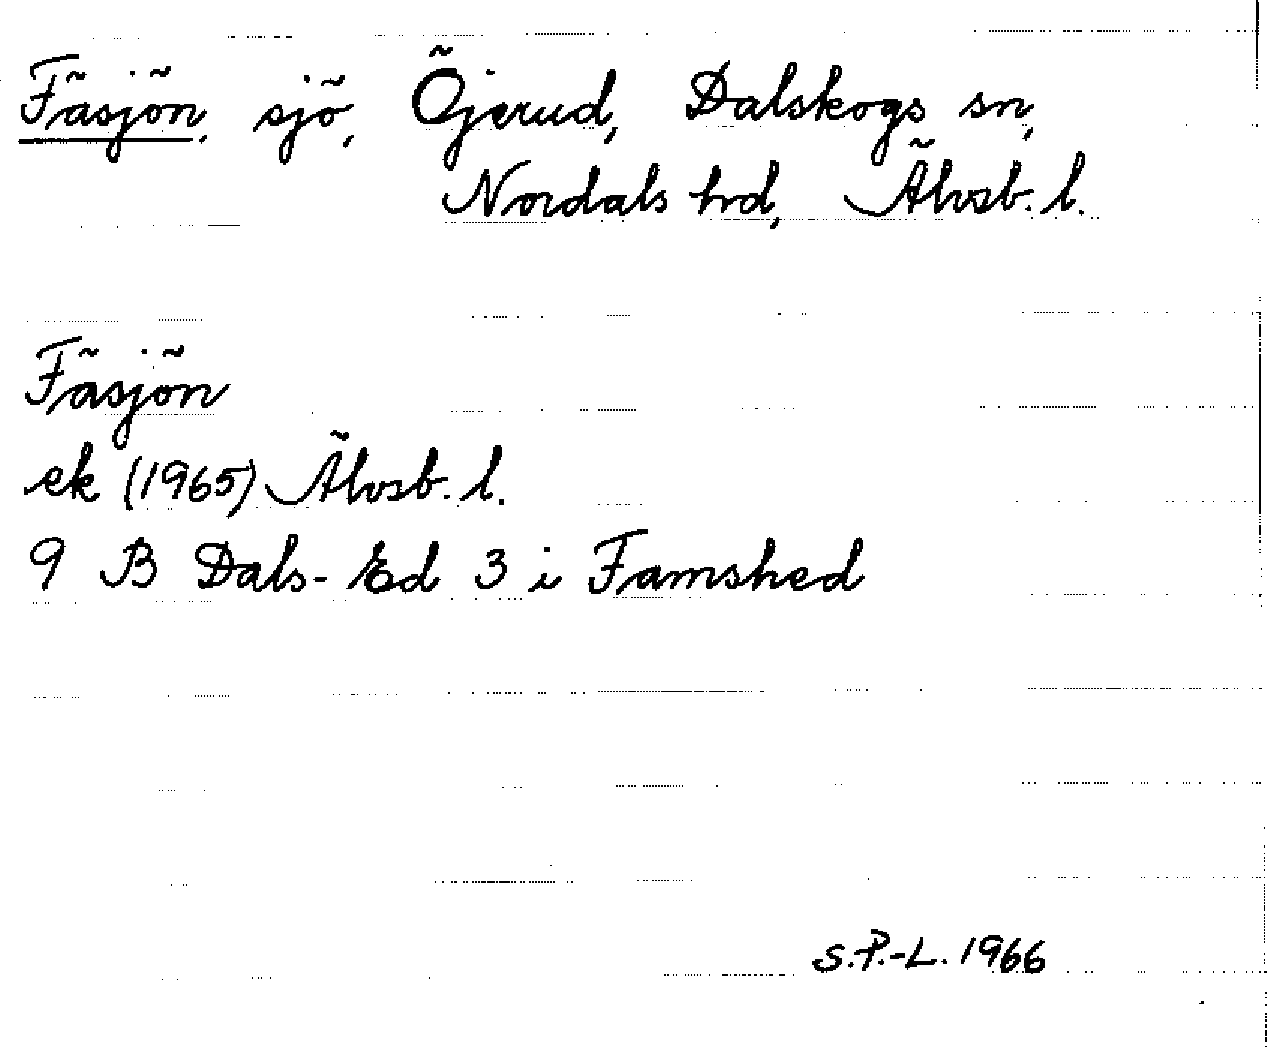 Fäsjön, sjö, Öjerud, Dalskogs sn,
Nordals hrd, Älvsb. l.
Fäsjön
ek (1965) Älvsb. l.
9 B Dals-Ed 3 i Framshed
S.P.-L. 1966